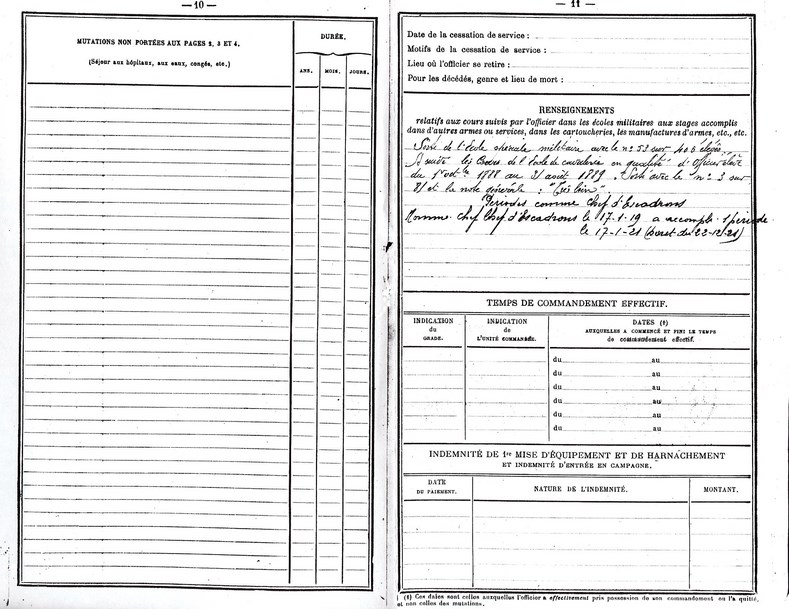 —10—
MUTATIONS NON PORTÉES AUX PAGES 2, 3 ET 4.
(Séjour aux hôpitaux, aux eaux, congés, etc.)
DURÉE.
ANS. MOIS. JOURS.
— 11 —
Date de la cessation de service :
Motifs de la cessation de service :
Lieu où l'officier se retire :
Pour les décédés, genre et lieu de mort :
RENSEIGNEMENTS
relatifs aux cours suivis par l'officier dans les écoles militaires aux stages accomplis
dans d'autres armes ou services, dans les cartoucheries, les manufactures d'armes, etc., etc.
Sorti de l'École spéciale militaire avec le n° 53 sur 406 élèves.
A suivi les Cours de l'École de cavalerie en qualité d'Officier élève
du 1er octbre 1888 au 31 août 1889. Sorti avec le n° 3 sur
81 et la note générale : "Très bien".
Périodes comme Chef d'Escadrons
Nommé Chef d'Escadrons le 17-1-19 a accompli 1 période
le 17-1-21 (Décret du 22-12-21)
TEMPS DE COMMANDEMENT EFFECTIF.
INDICATION du GRADE.
INDICATION de L'UNITÉ COMMANDÉE.
DATES (1)
AUXQUELLES A COMMENCÉ ET FINI LE TEMPS
de commandement effectif.
du au
du au
du au
du au
du au
du au
INDEMNITÉ DE 1re MISE D'ÉQUIPEMENT ET DE HARNACHEMENT
ET INDEMNITÉ D'ENTRÉE EN CAMPAGNE.
DATE DU PAIEMENT.
NATURE DE L'INDEMNITÉ.
MONTANT.
(1) Ces dates sont celles auxquelles l'officier a effectivement pris possession de son commandement ou l'a quitté,
et non celles des mutations.